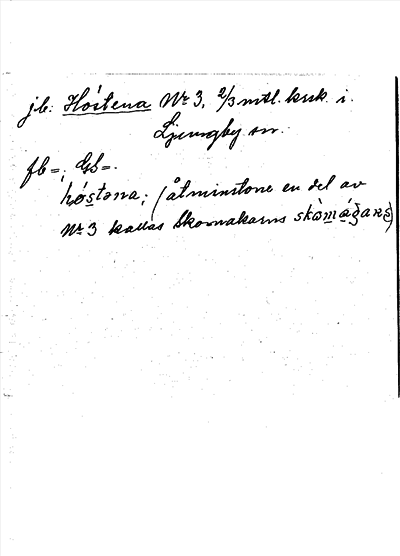 jb: Höstena Nr 3, 2/3 mtl. krk. i.
Ljungby sn.
fb=; Gb=.
hó̱stəna; (åtminstone en del av
Nr 3 kallas Skomakarns skò̱má̱garns)